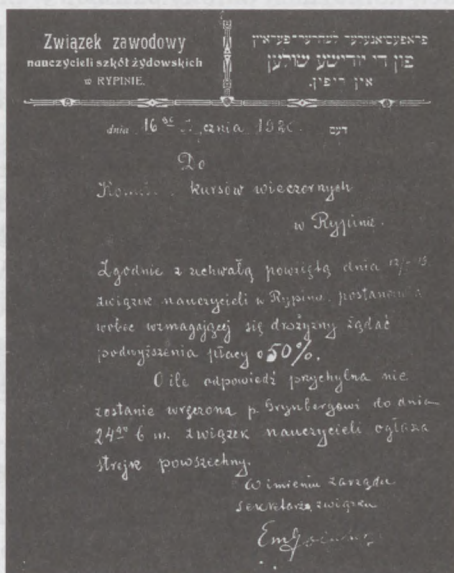 Związek zawodowy
nauczycieli szkół żydowskich
w RYPINIE.
פראפעסיאנעלער לעהרער-פאראיין
פון די יודישע שולען
אין ריפין.
dnia 16go 192 דעם
Do
kursów wieczornych
w Rypinie.
Zgodnie z uchwałą powziętą dnia
związek nauczycieli w Rypinie postanowił
wobec wzmagającej się drożyzny żądać
podwyższenia płacy o 50%.
O ile odpowiedź przychylna nie
zostanie wręczona p. Grynbergowi do dnia
24go b m. związek nauczycieli ogłasza
strejk powszechny.
W imieniu zarządu
sekretarz związku